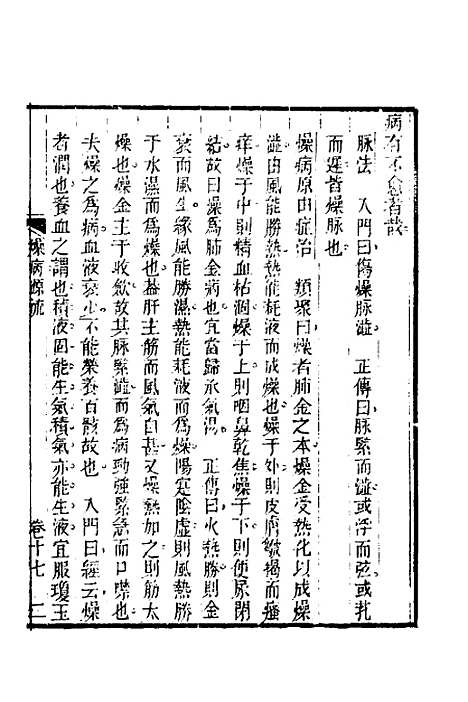 病有不愈者哉
脉法　入門曰傷燥脉澁　正傳曰脉緊而澁或浮而弦或芤
而遲皆燥脉也
燥病原由症治　類聚曰燥者肺金之本燥金受熱化以成燥
澁由風能勝濕熱能耗液而成燥也燥于外則皮膚皺揭而搔
痒燥于中則精血枯涸燥于上則咽鼻乾焦燥于下則便尿閉
結故曰燥爲肺金病也宜當歸承氣湯　正傳曰火熱勝則金
衰而風生緣風能勝濕熱能耗液而爲燥陽實陰虛則風熱勝
于水濕而爲燥也蓋肝主筋而風氣自甚又燥熱加之則筋太
燥也燥金主于收歛故其脉緊澁而爲病勁強緊急而口噤也
夫燥之爲病血液衰少不能榮養百骸故也　入門曰經云燥
者潤也養血之謂也積液固能生氣積氣亦能生液宜服瓊玉
燥病源流
卷十七　二